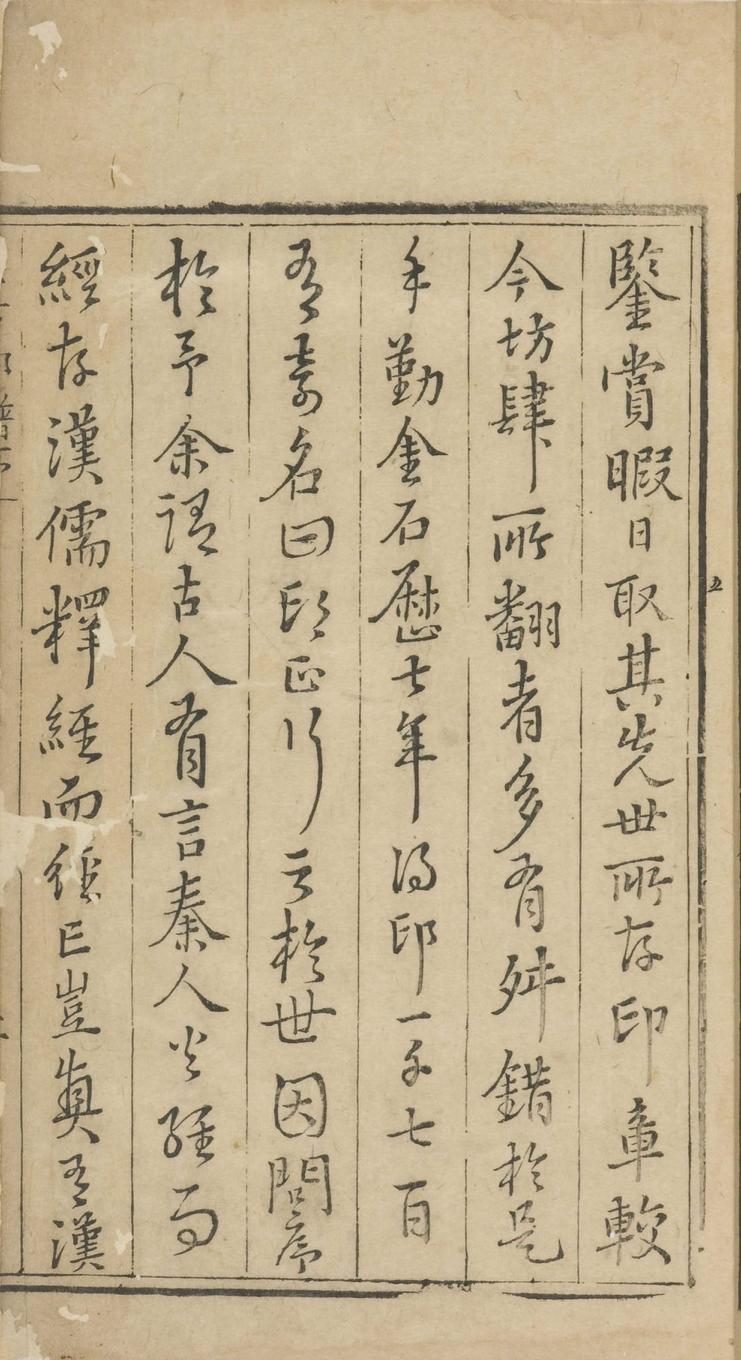 鑒賞暇日取其先世所存印章較
今坊肆所翻者多有舛錯於是
手勤金石歷七年得印一千七百
有奇名曰印正行於世因問序
於予余謂古人有言秦人火經而
經存漢儒釋經而經亡豈真有漢